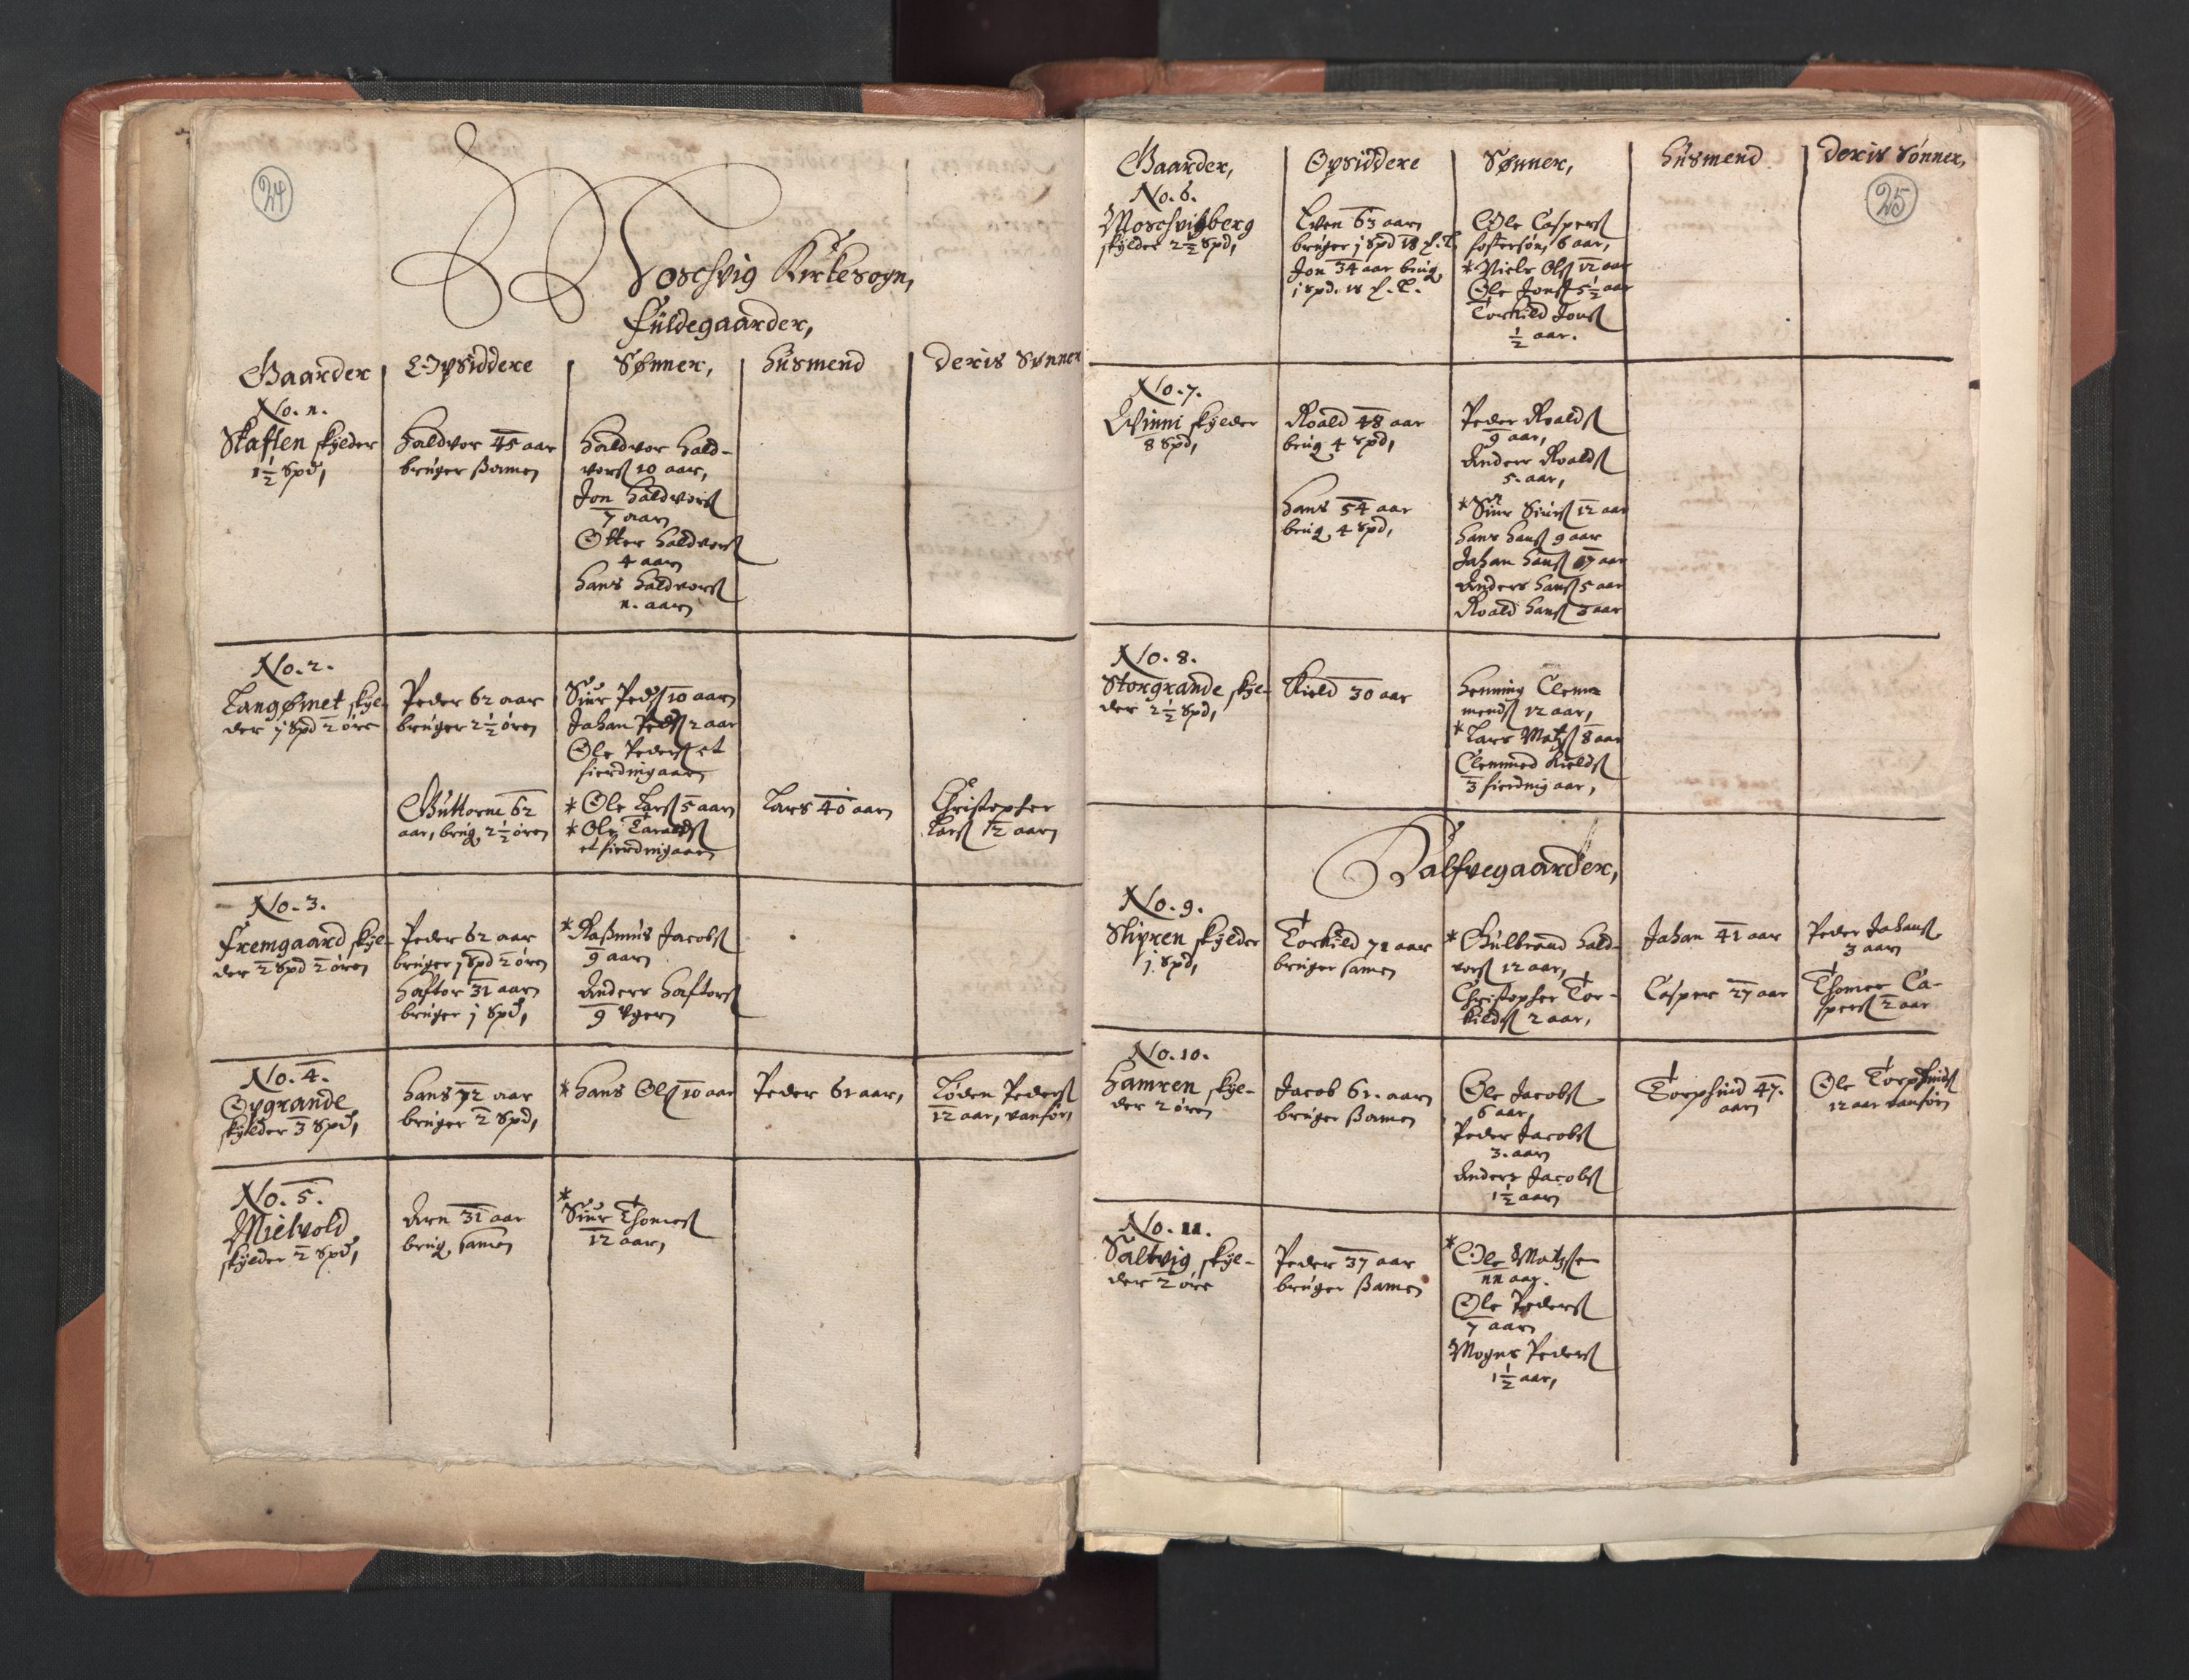 24
Moschvig Kirkesogn,
Füldegaarder,
Gaarder
Opsiddere
Sønner,
Hüsmend
Deris Sønner
No. 1.
Skaflen skylder
1½ Spd,
Haldvor 45 aar
brüger Samen
Haldvor Hald-
vors 10 aar,
Jon Haldvors
7 aar
Otter Haldvors
4 aar
Hans Haldvors
1. aar
No. 2.
Langømet skyl-
der j Spd 2 øre
Peder 62 aar
brüger 2½ øre
Siur Peds 10 aar
Jahan Peds 2 aar
Ole Peders et
fierding aar
Guttorm 62
aar, brüg 2½ øre
* Ole Lars 5 aar
* Ole
et fierding aar
Lars 40 aar
Christopher
Lars ½ aar
No. 3.
Fremgaard skyl-
der 2 Spd 2 øre
Peder 62 aar
brüger j Spd 2 øre
Haftor 31 aar
brüger j Spd,
* Rasmus Jacobs
9 aar
Anders Haftors
9 Uger
No. 4.
Opgrande
skylder 3 Spd,
Hans 72 aar
brüger 2 Spd,
* Hans Ols 10 aar
Peder 61 aar,
Løden Peders
12 aar, vanfør
No. 5.
Mielvold
skylder 2 Spd,
Arn 31 aar
brüg samen
* Siur Thomes
12 aar,
25
Gaarder,
Opsiddere
Sønner,
Hüsmend
Deris Sønner,
No. 6.
Moschvigberg
skylder 2½ Spd,
Even 63 aar
brüger j Spd 18
Jon 34 aar brüg
j Spd. 18
Ole Caspers
fostersøn, 6 aar,
* Niels Ols 12 aar
Ole Jons 5½ aar
Torkild Jons
½ aar.
No. 7.
Vinni skylder
8 Spd,
Roald 48 aar
brüg 4 Spd,
Peder Roalds
9 aar,
Anders Roalds
5. aar,
Hans 54 aar
brüg 4 Spd,
* Siur Siurs 12 aar
Hans Hans 9 aar
Jahan Hans 7 aar
Anders Hans 5 aar
Roald Hans 3 aar
No. 8.
Storgrande skyl-
der 2½ Spd,
Kield 30 aar
Henning Clem-
mends 12 aar,
* Lars Mats 8 aar
Clemmed Kields
3 fierding aar,
Halfvegaarder,
No. 9.
Slipren skylder
j. Spd,
Torkild 71 aar
brüger samen
* Gulbrand Hald-
vors 12 aar,
Christopher Tor-
kilds 2 aar,
Jahan 41 aar
Peder Jahans
3 aar
Casper 27 aar
Thomes Ca-
spers 2 aar
No. 10.
Hamren skyl-
der 2 øre
Jacob 61. aar
brüger Samen
Ole Jacobs
6 aar,
Peder Jacobs
3. aar
Anders Jacobs
1½ aar
Torphind 47.
aar
Ole Torphinds
12 aar vanfør
No. 11.
Saltvig skyl-
der 2 øre
Peder 37 aar
brüger Samen
* Ole Matssen
11 aar.
Ole Peders
7 aar
Mogns Peders
1½ aar,